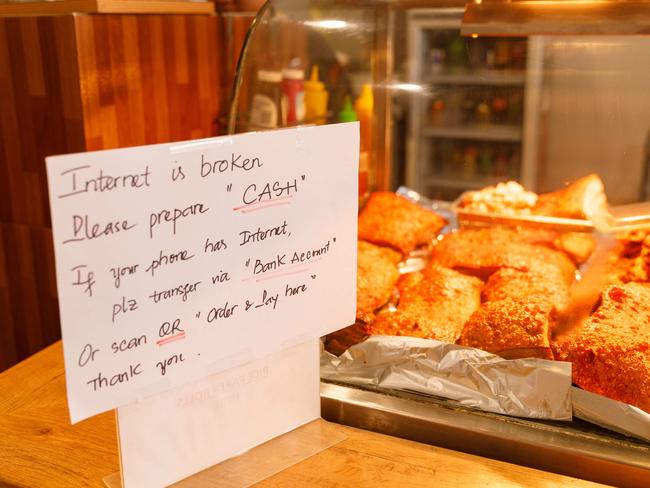 Internet is broken
Please prepare "CASH"
If your phone has Internet,
plz transfer via "Bank Account"
Or scan QR "Order & Pay here"
Thank you.